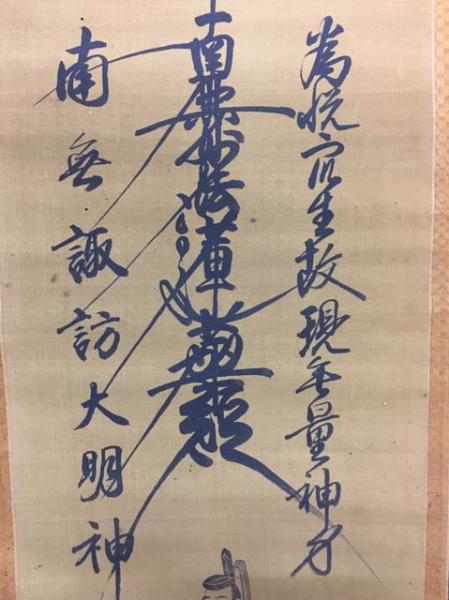 為悦众生故現無量神力
南無妙法蓮華經
南無諏訪大明神